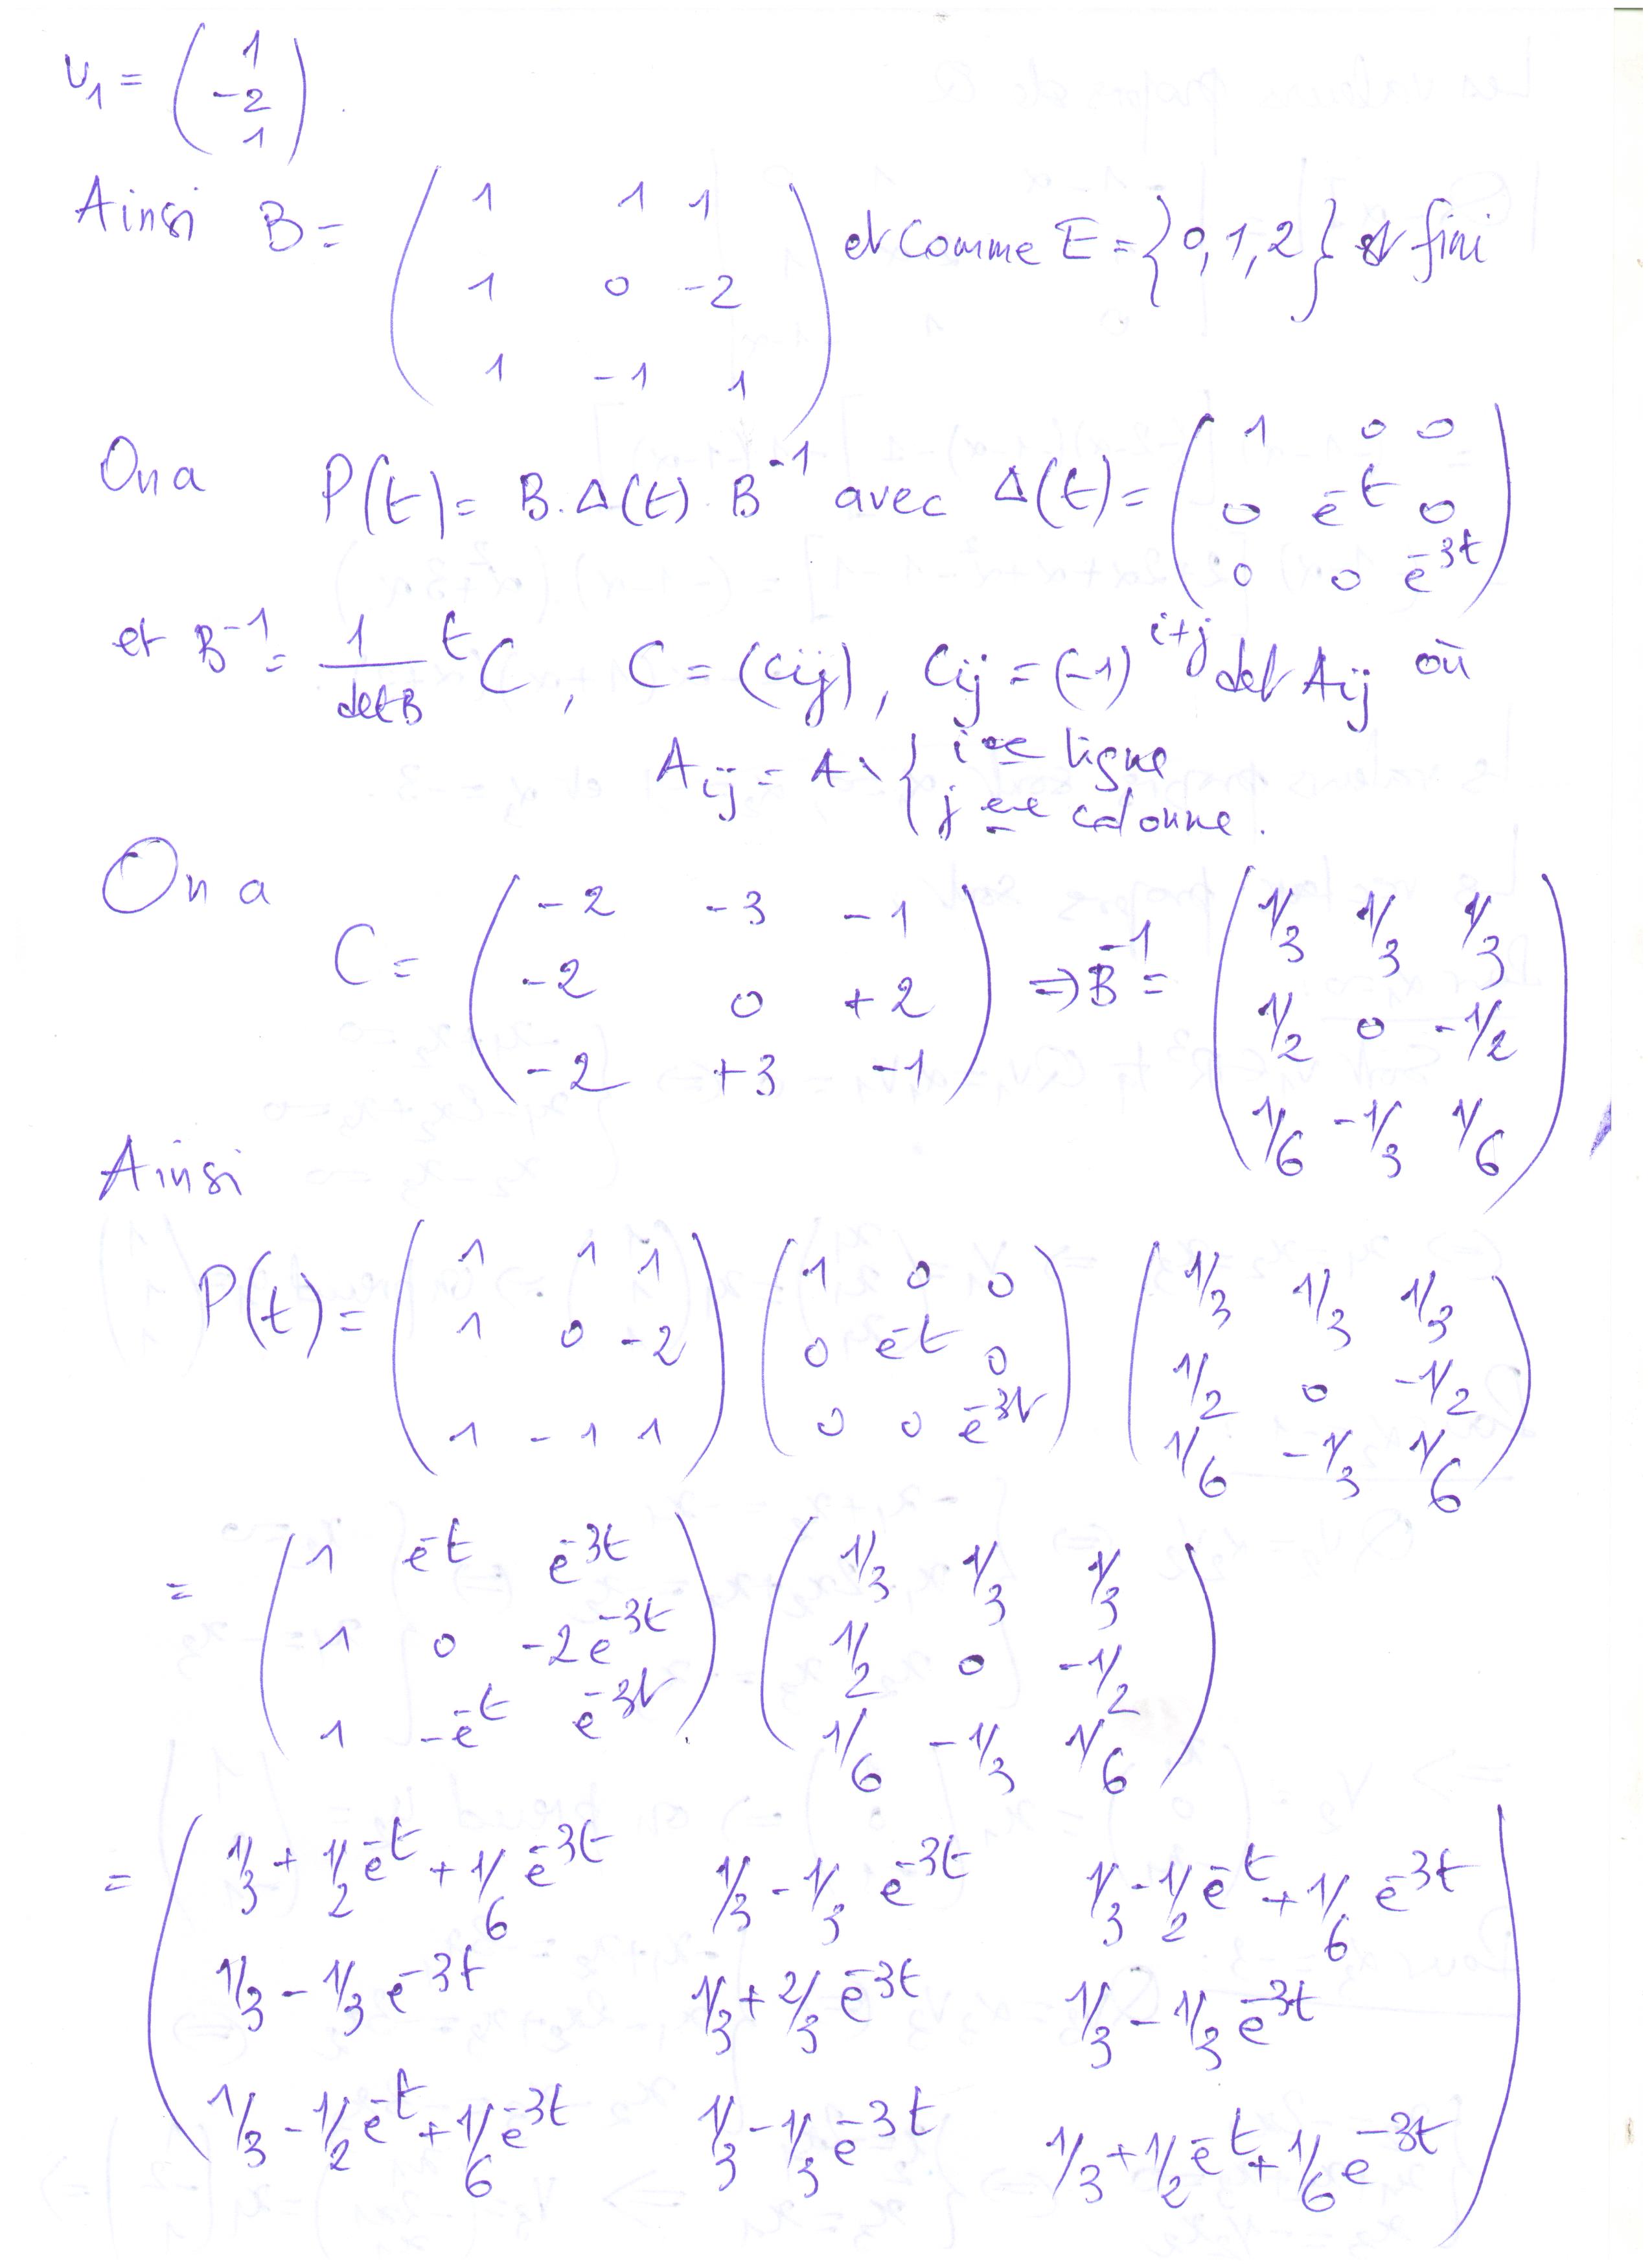 U₁ = ( 1 ; -2 ; 1 ).
Ainsi B = ( 1 1 1 ; 1 0 -2 ; 1 -1 1 ) et comme E = {0, 1, 2} est fini
On a P(t) = B. Δ(t). B⁻¹ avec Δ(t) = ( 1 0 0 ; 0 e⁻ᵗ 0 ; 0 0 e⁻³ᵗ )
et B⁻¹ = 1/detB ᵗC, C = (cij), Cij = (-1)^{i+j} det Aij où
Aij = A \ { i ème ligne
j ème colonne.
On a
C = ( -2 -3 -1 ; -2 0 +2 ; -2 +3 -1 ) ⇒ B⁻¹ = ( 1/3 1/3 1/3 ; 1/2 0 -1/2 ; 1/6 -1/3 1/6 )
Ainsi
P(t) = ( 1 1 1 ; 1 0 -2 ; 1 -1 1 ) ( 1 0 0 ; 0 e⁻ᵗ 0 ; 0 0 e⁻³ᵗ ) ( 1/3 1/3 1/3 ; 1/2 0 -1/2 ; 1/6 -1/3 1/6 )
= ( 1 e⁻ᵗ e⁻³ᵗ ; 1 0 -2e⁻³ᵗ ; 1 -e⁻ᵗ e⁻³ᵗ ) ( 1/3 1/3 1/3 ; 1/2 0 -1/2 ; 1/6 -1/3 1/6 )
= ( 1/3 + 1/2 e⁻ᵗ + 1/6 e⁻³ᵗ 1/3 - 1/3 e⁻³ᵗ 1/3 - 1/2 e⁻ᵗ + 1/6 e⁻³ᵗ
1/3 - 1/3 e⁻³ᵗ 1/3 + 2/3 e⁻³ᵗ 1/3 - 1/3 e⁻³ᵗ
1/3 - 1/2 e⁻ᵗ + 1/6 e⁻³ᵗ 1/3 - 1/3 e⁻³ᵗ 1/3 + 1/2 e⁻ᵗ + 1/6 e⁻³ᵗ )